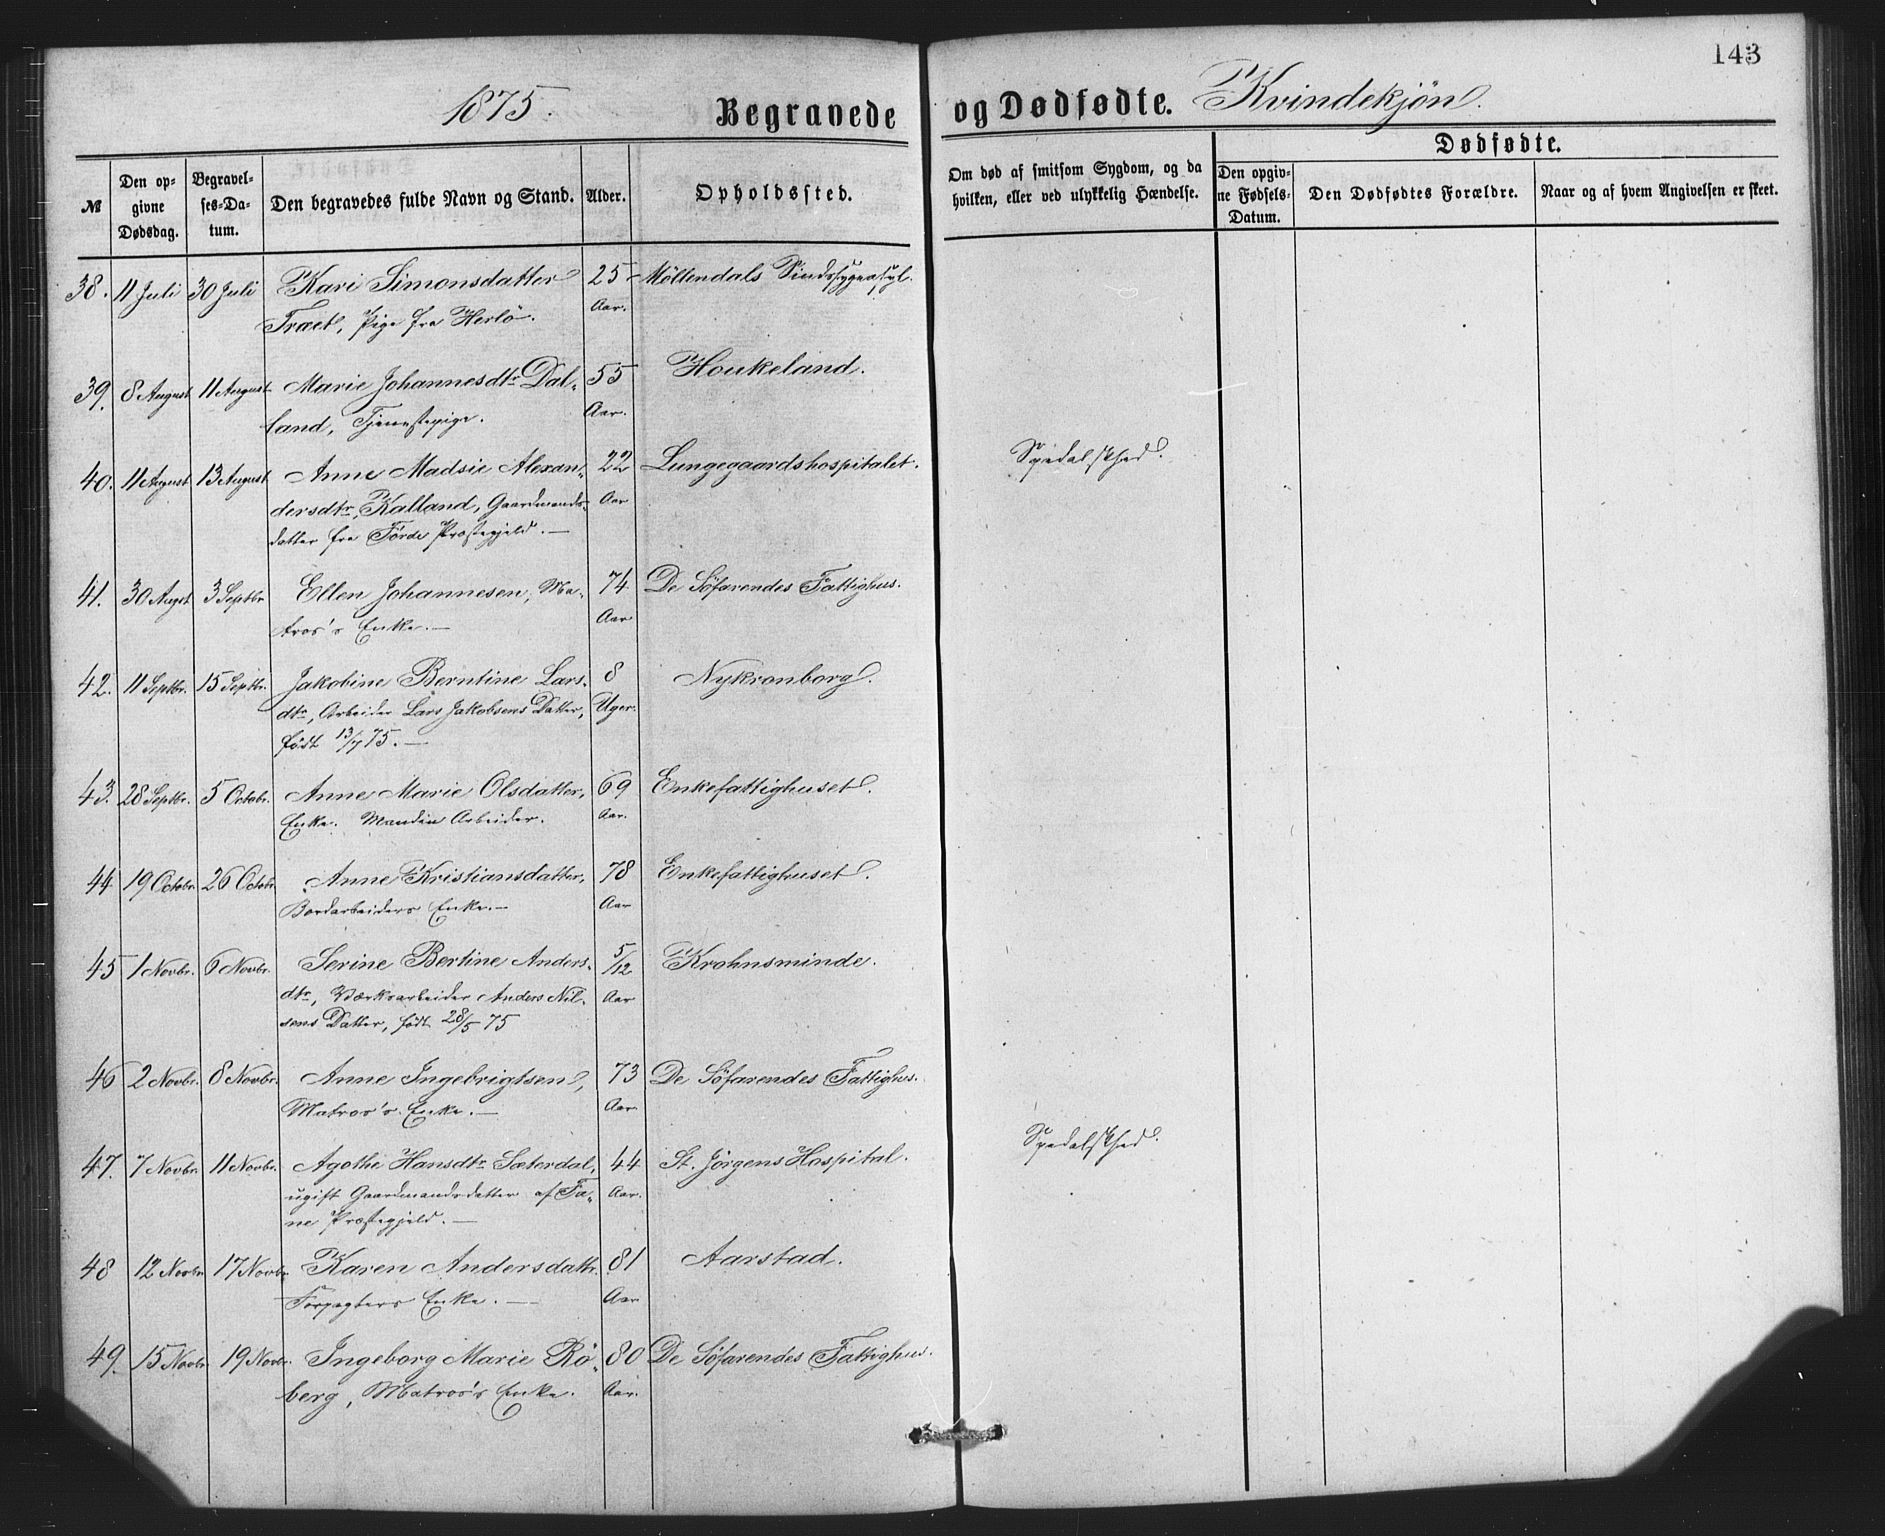 143
1875.
Begravede og Dødfødte. Kvindekjön.
Dødfødte.
№
Den op-
givne
Dødsdag.
Begravel-
ses-Da-
tum.
Den begravedes fulde Navn og Stand.
Alder.
Opholdssted.
Om død af smitsom Sygdom, og da
hvilken, eller ved ulykkelig Hændelse.
Den opgiv-
ne Fødsels-
Datum.
Den Dødfødtes Forældre.
Naar og af hvem Angivelsen er skeet.
38. 11 Juli 30 Juli Kari Simonsdatter 25 Möllendals Sindssygeasyl.
Træet, Pige fra Herlö. Aar.
39. 8 August 11 August Marie Johannesdtr Dal- 55 Houkeland.
land, Tjenestepige. Aar.
40. 11 August 13 August Anne Madsie Alexan- 22 Lungegaardshospitalet. Spedalskhed.
dersdtr Kalland, Gaardmands- Aar
datter fra Förde Præstegjeld. —
41. 30 Augst 3 Septbr Ellen Johannesen, Ma- 74 De Söfarendes Fattighus.
tros's Enke. — Aar
42. 11 Septbr. 15 Septbr. Jakobine Berntine Lars- 8 Nykronborg.
dtr, Arbeider Lars Jakobsens Datter, Uger.
födt 13/7 75. —
43. 28 Septbr. 5 Octobr. Anne Marie Olsdatter, 69 Enkefattighuset.
Enke. Manden Arbeider. Aar.
44 19 Octobr. 26 Octobr. Anne Kristiansdatter, 78 Enkefattighuset.
Bordarbeiders Enke. — Aar
45 1 Novbr. 6 Novbr. Serine Bertine Anders- 5/12 Krohnsminde.
dtr, Værksarbeider Anders Nil- Aar
sens Datter, födt 28/5 75
46 2 Novbr. 8 Novbr. Anne Ingebrigtsen, 73 De Söfarendes Fattighus.
Matros's Enke. — Aar.
47. 7 Novbr. 11 Novbr. Agothe Hansdtr Sæterdal, 44 St. Jörgens Hospital. Spedalskhed.
ugift Gaardmandsdatter af Fa- Aar.
ne Præstegjeld. —
48 12 Novbr 17 Novbr. Karen Andersdattr. 81 Aarstad.
Forpagters Enke. — Aar
49. 15 Novbr 19 Novbr. Ingeborg Marie Rö- 80 De Söfarendes Fattighus.
berg, Matros's Enke. Aar.